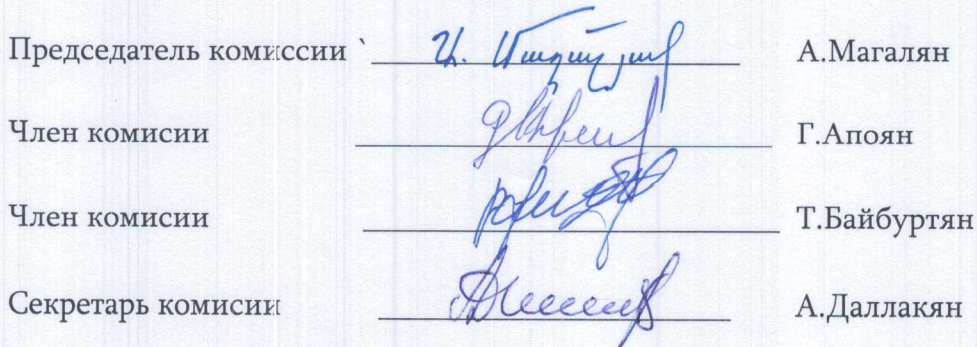 Председатель комиссии ՝ А.Магалян
Член комисии Г.Апоян
Член комисии Т.Байбуртян
Секретарь комисии А.Даллакян